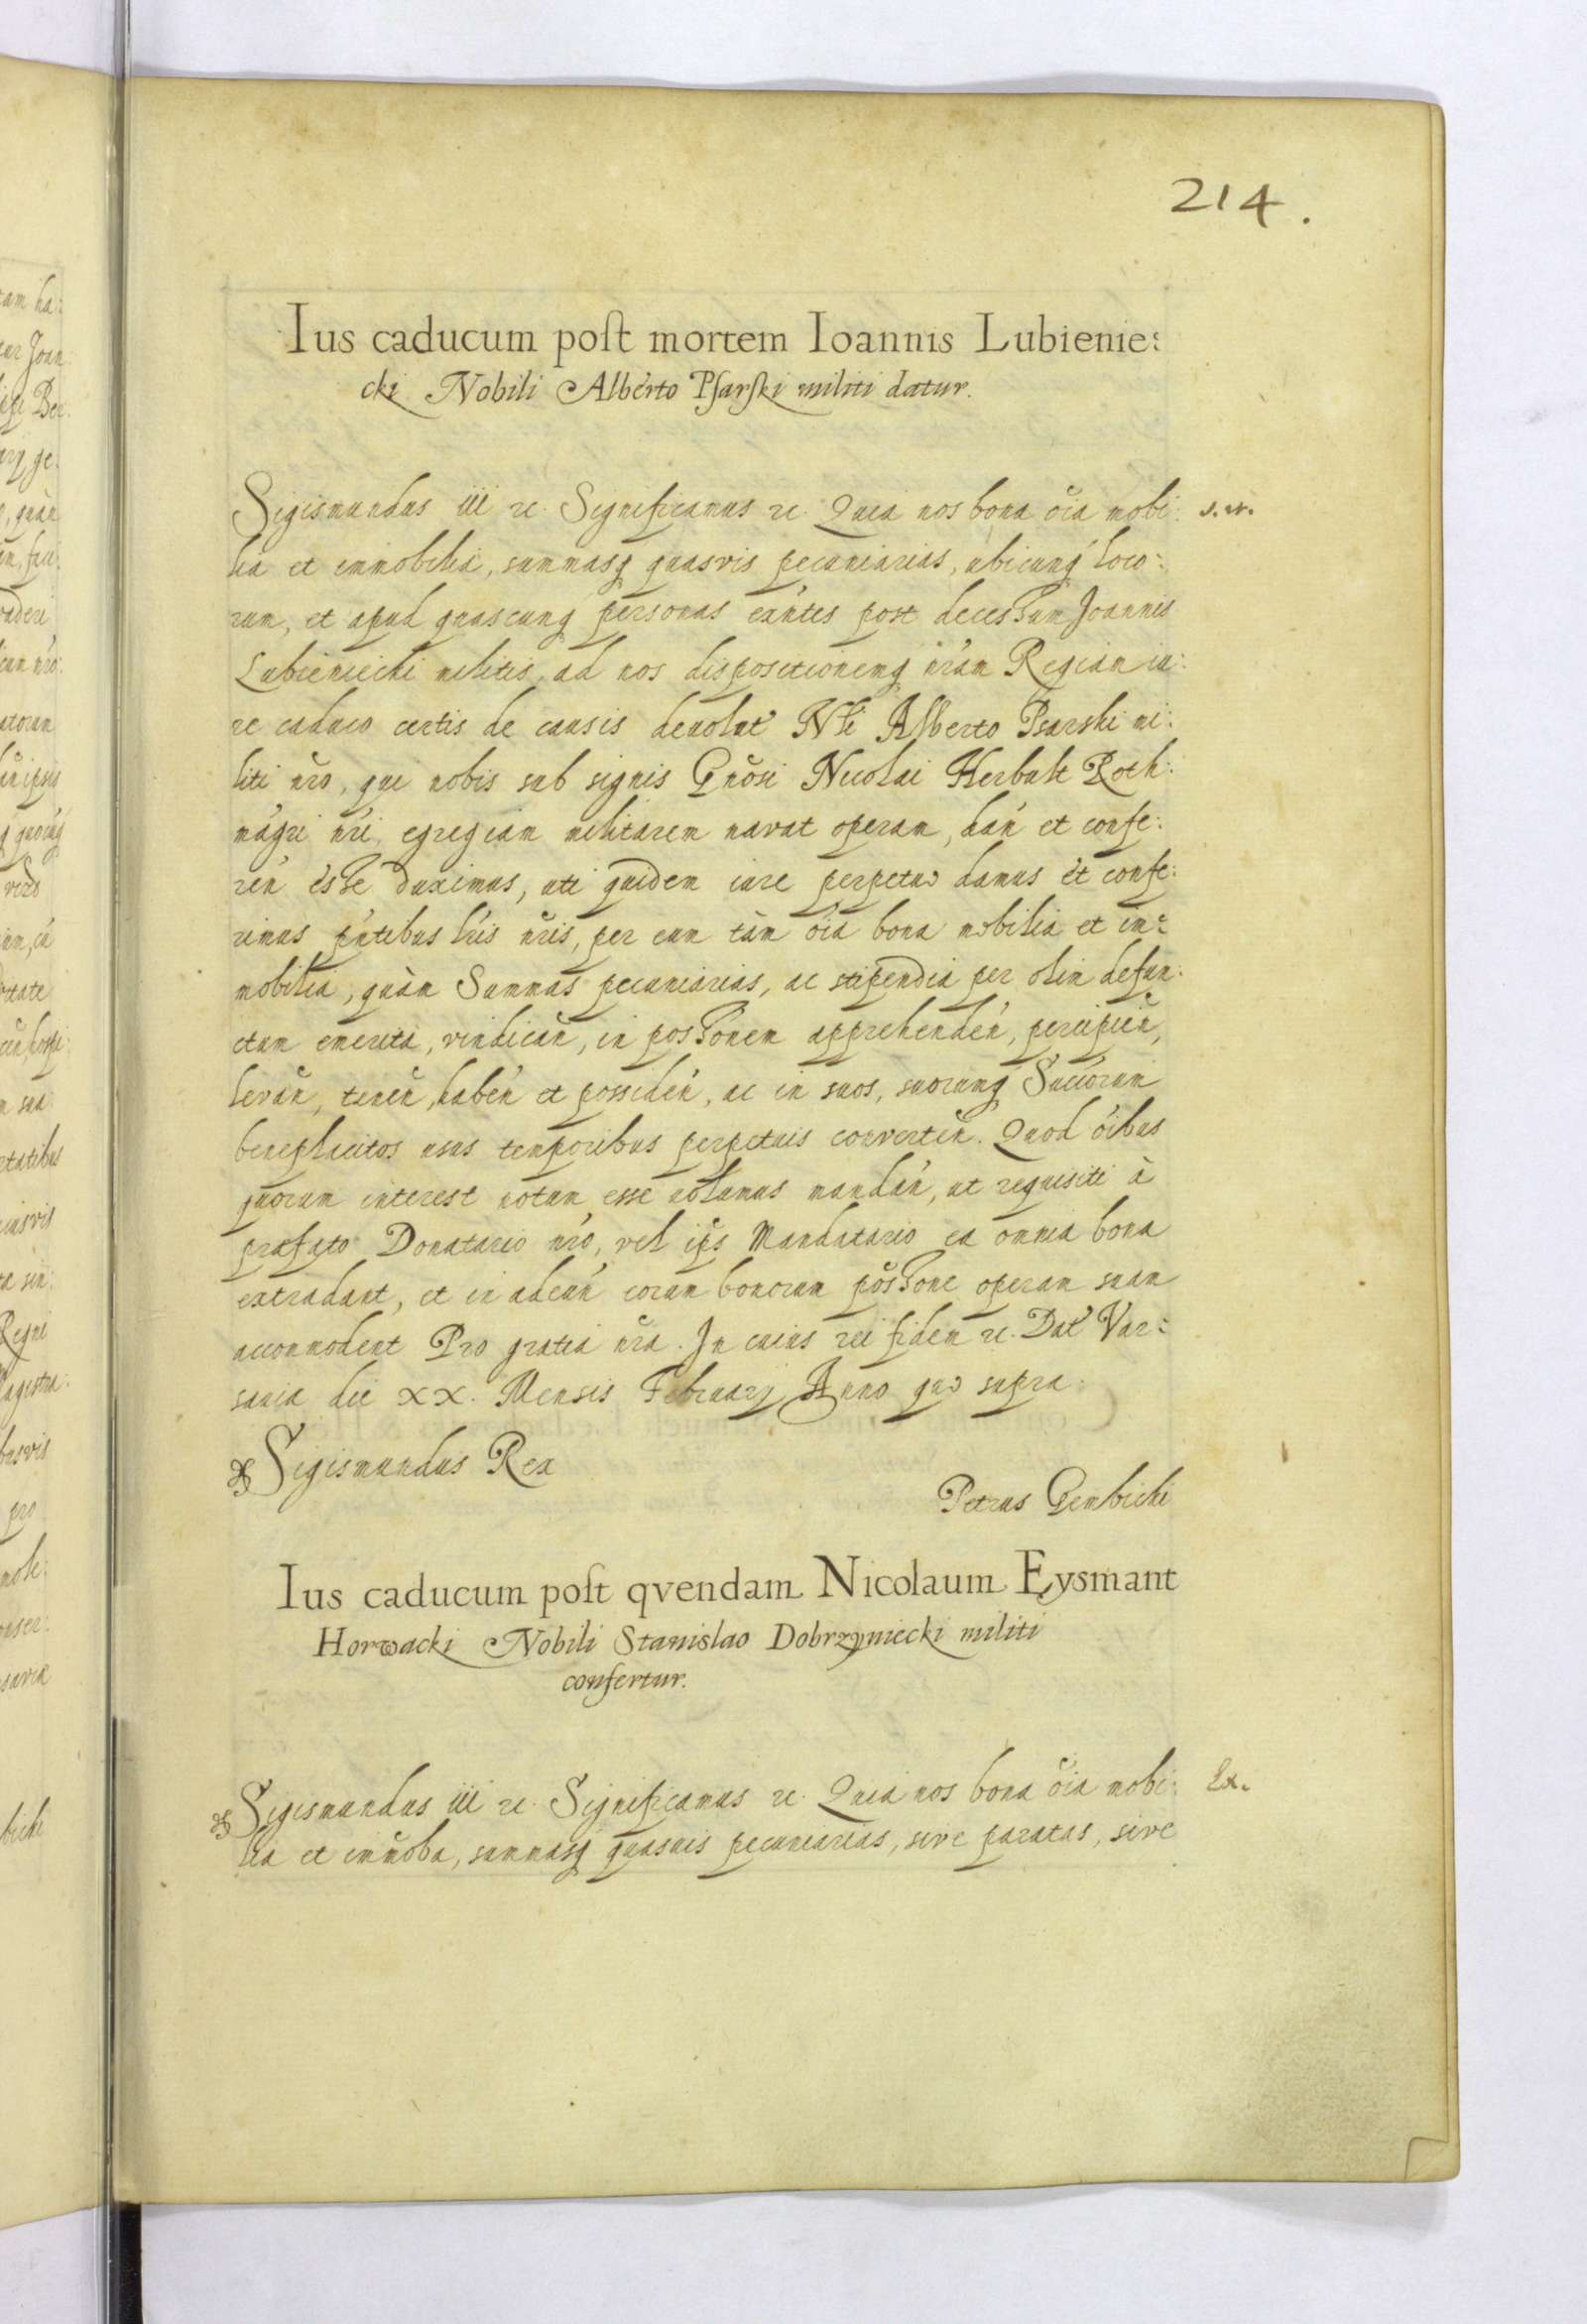 214.
Ius caducum post mortem Ioannis Lubienie:
cki Nobili Alberto Psarski militi datur.
Sigismundus iii etc. Significamus etc. Quia nos bona oĩa mobi: s. v.
lia et immobilia, summasq quasvis pecuniarias, ubicunq loco:
rum, et apud quascunq personas exñtes post decessum Joannis
Lubieniecki militis, ad nos dispositionemq nrãm Regiam iu:
re caduco certis de causis devolut Nli Alberto Psarski mi:
liti nro, qui nobis sub signis Gnosi Nicolai Herbult Roth:
magri nri, egregiam militarem navat operam, dan et confe:
ren esse duximus, uti quidem iure perpetuo damus et confe:
rimus pntibus lris nris, per eum tam oia bona mobilia et im:
mobilia, quàm Summas pecuniarias, ac stipendia per olim defun:
ctum emerita, vindican, in possionem apprehenden, percipien,
levan, tenen, haben et possiden, ac in suos, suorumq Succorum
beneplacitos usus temporibus perpetuis converten. Quod oibus
quorum interest notum esse volumus mandan, ut requisiti à
præfato Donatario nro, vel ips Mandatario ea omnia bona
extradant, et in adeun eorum bonorum possione operam suam
accommodent Pro gratia nra. In cuius rei fidem etc. Dat Var:
savia die XX. Mensis Februarij Anno quo supra.
Sigismundus Rex
Petrus Gembicki
Ius caducum post qvendam Nicolaum Eysmant
Horwacki Nobili Stanislao Dobrzyniecki militi
confertur.
Sigismundus iii etc. Significamus etc. Quia nos bona oĩa mobi: Ex.
lia et immoba, summasq quasvis pecuniarias, sive paratas, sive